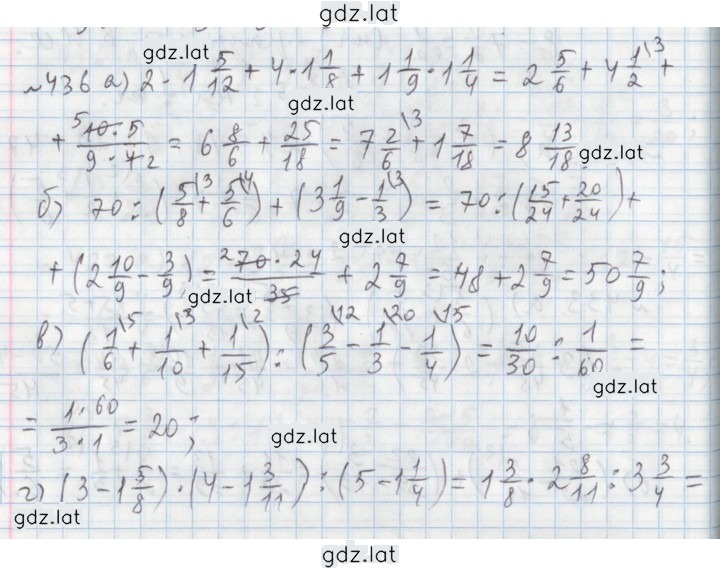 gdz.lat
gdz.lat
№436 а) 2·1 5/12 + 4·1 1/8 + 1 1/9 · 1 1/4 = 2 5/6 + 4 1/2 \3 +
gdz.lat
+ 5 10·5 / 9·4 2 = 6 8/6 + 25/18 = 7 2/6 \3 + 1 7/18 = 8 13/18
gdz.lat
б) 70 : (5/8 \3 + 5/6 \4) + (3 1/9 - 1/3 \3) = 70 : (15/24 + 20/24) +
gdz.lat
+ (2 10/9 - 3/9) = 2 70·24 / 35 + 2 7/9 = 48 + 2 7/9 = 50 7/9 ;
gdz.lat
в) (1/6 \5 + 1/10 \3 + 1/15 \2) : (3/5 \12 - 1/3 \20 - 1/4 \15) = 10/30 : 1/60 =
gdz.lat
= 1·60 / 3·1 = 20 ;
gdz.lat
г) (3 - 1 5/8) · (4 - 1 3/11) : (5 - 1 1/4) = 1 3/8 · 2 8/11 : 3 3/4 =
gdz.lat
gdz.lat